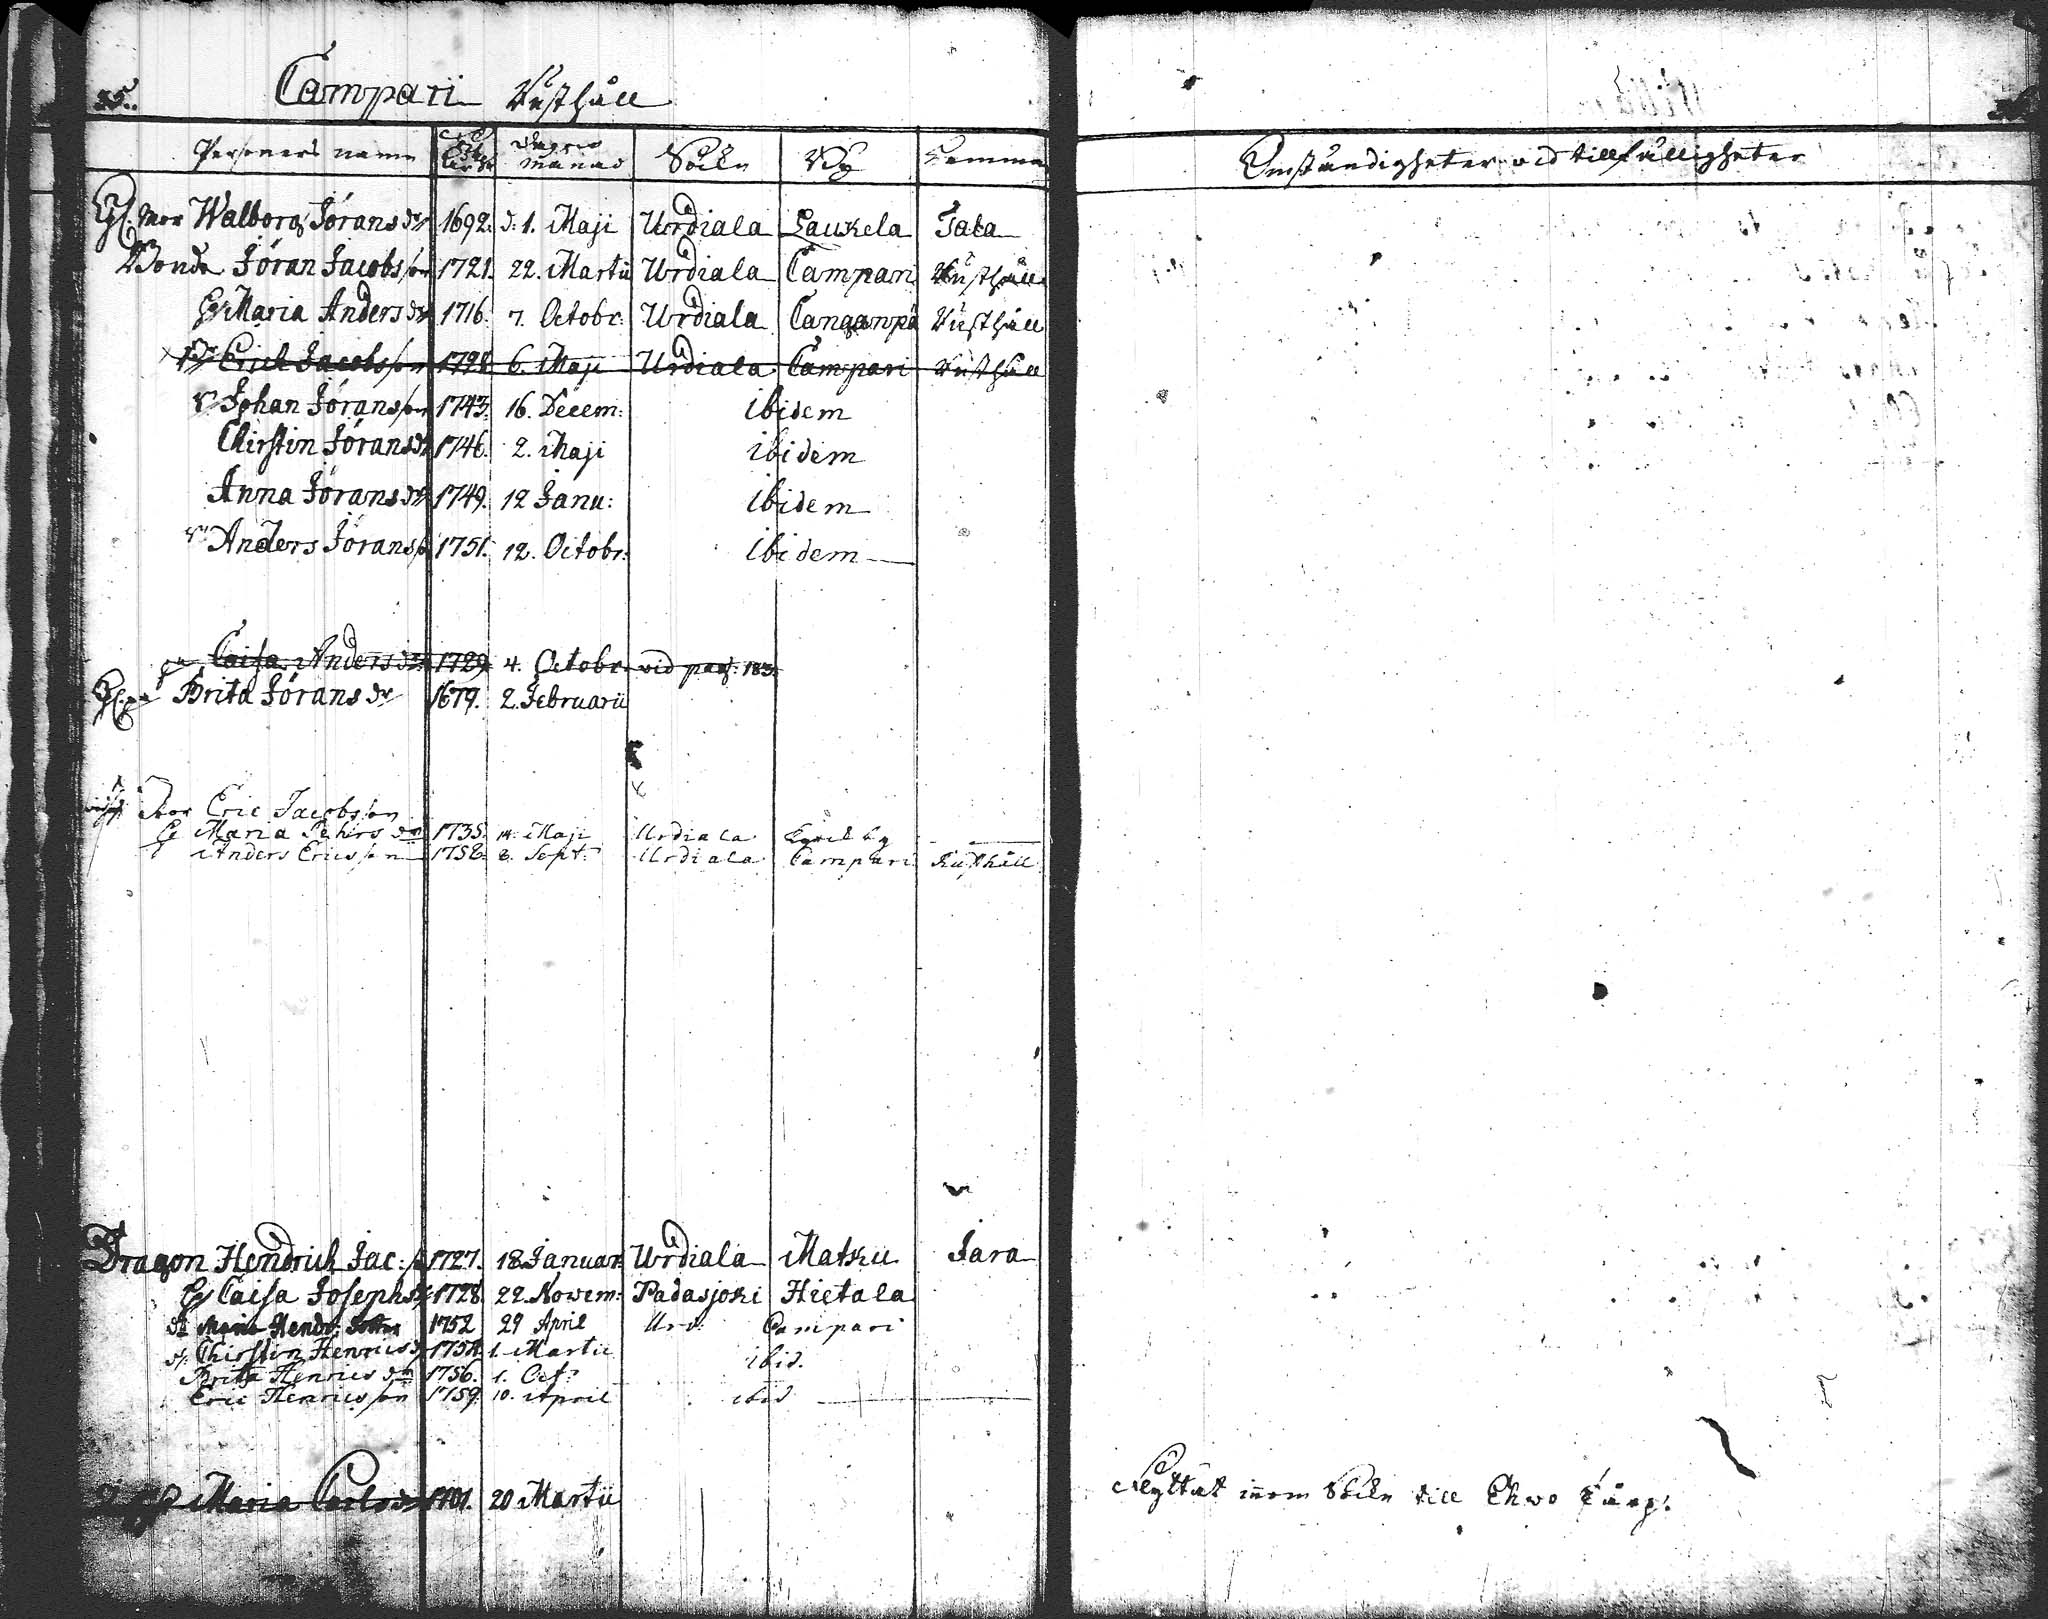 85.
Campari Rusthåll
Personers namn Dag och månad Sokn By Hemman
Omständigheter vid tillfälligheter
Gl. mor Walborg Jörans dr 1692. d. 1. Maji Urdiala Laukela Tala
Bonde Jöran Jacobsson 1721. 22. Martii Urdiala Campari Rusthåll
H Maria Anders dr 1716. 7. Octobr: Urdiala Canganpä Rusthåll
Br Erich Jacobsson 1728 6. Maji Urdiala Campari Rusthåll
Johan Jöransson 1743. 16. Decem: ibidem
Chirstin Jöransdr 1746. 2. Maji ibidem
Anna Jöransdr 1749. 12 Janu: ibidem
Anders Jöranss 1751. 12. Octobr: ibidem
Caisa Andersdr 1729 4. Octobr vid pag. 183.
Brita Jörans dr 1679. 2. Februarii
Eric Jacobsson
H Maria Pehrs dr 1735. 14. Maji Urdiala by
Anders Ericsson 1758. 8. Sept: Urdiala Campari Rusthåll
Dragon Hendrich Jac: s 1727. 18. Januar. Urdiala Matku Jara
H Caisa Josephsdr 1728. 22. Novem: Padasjoki Hietala
Maria Hendr: dotter 1752 29 April Urd: Campari
Chirstin Henricsdr 1754. 1. Martii ibid.
Brita Henrics dr 1756. 1. Oct:
Eric Henricsson 1759. 10. April ibid
Maria Carlsdr 1701. 20 Martii
Flyttat inom Sokn till Ehwo